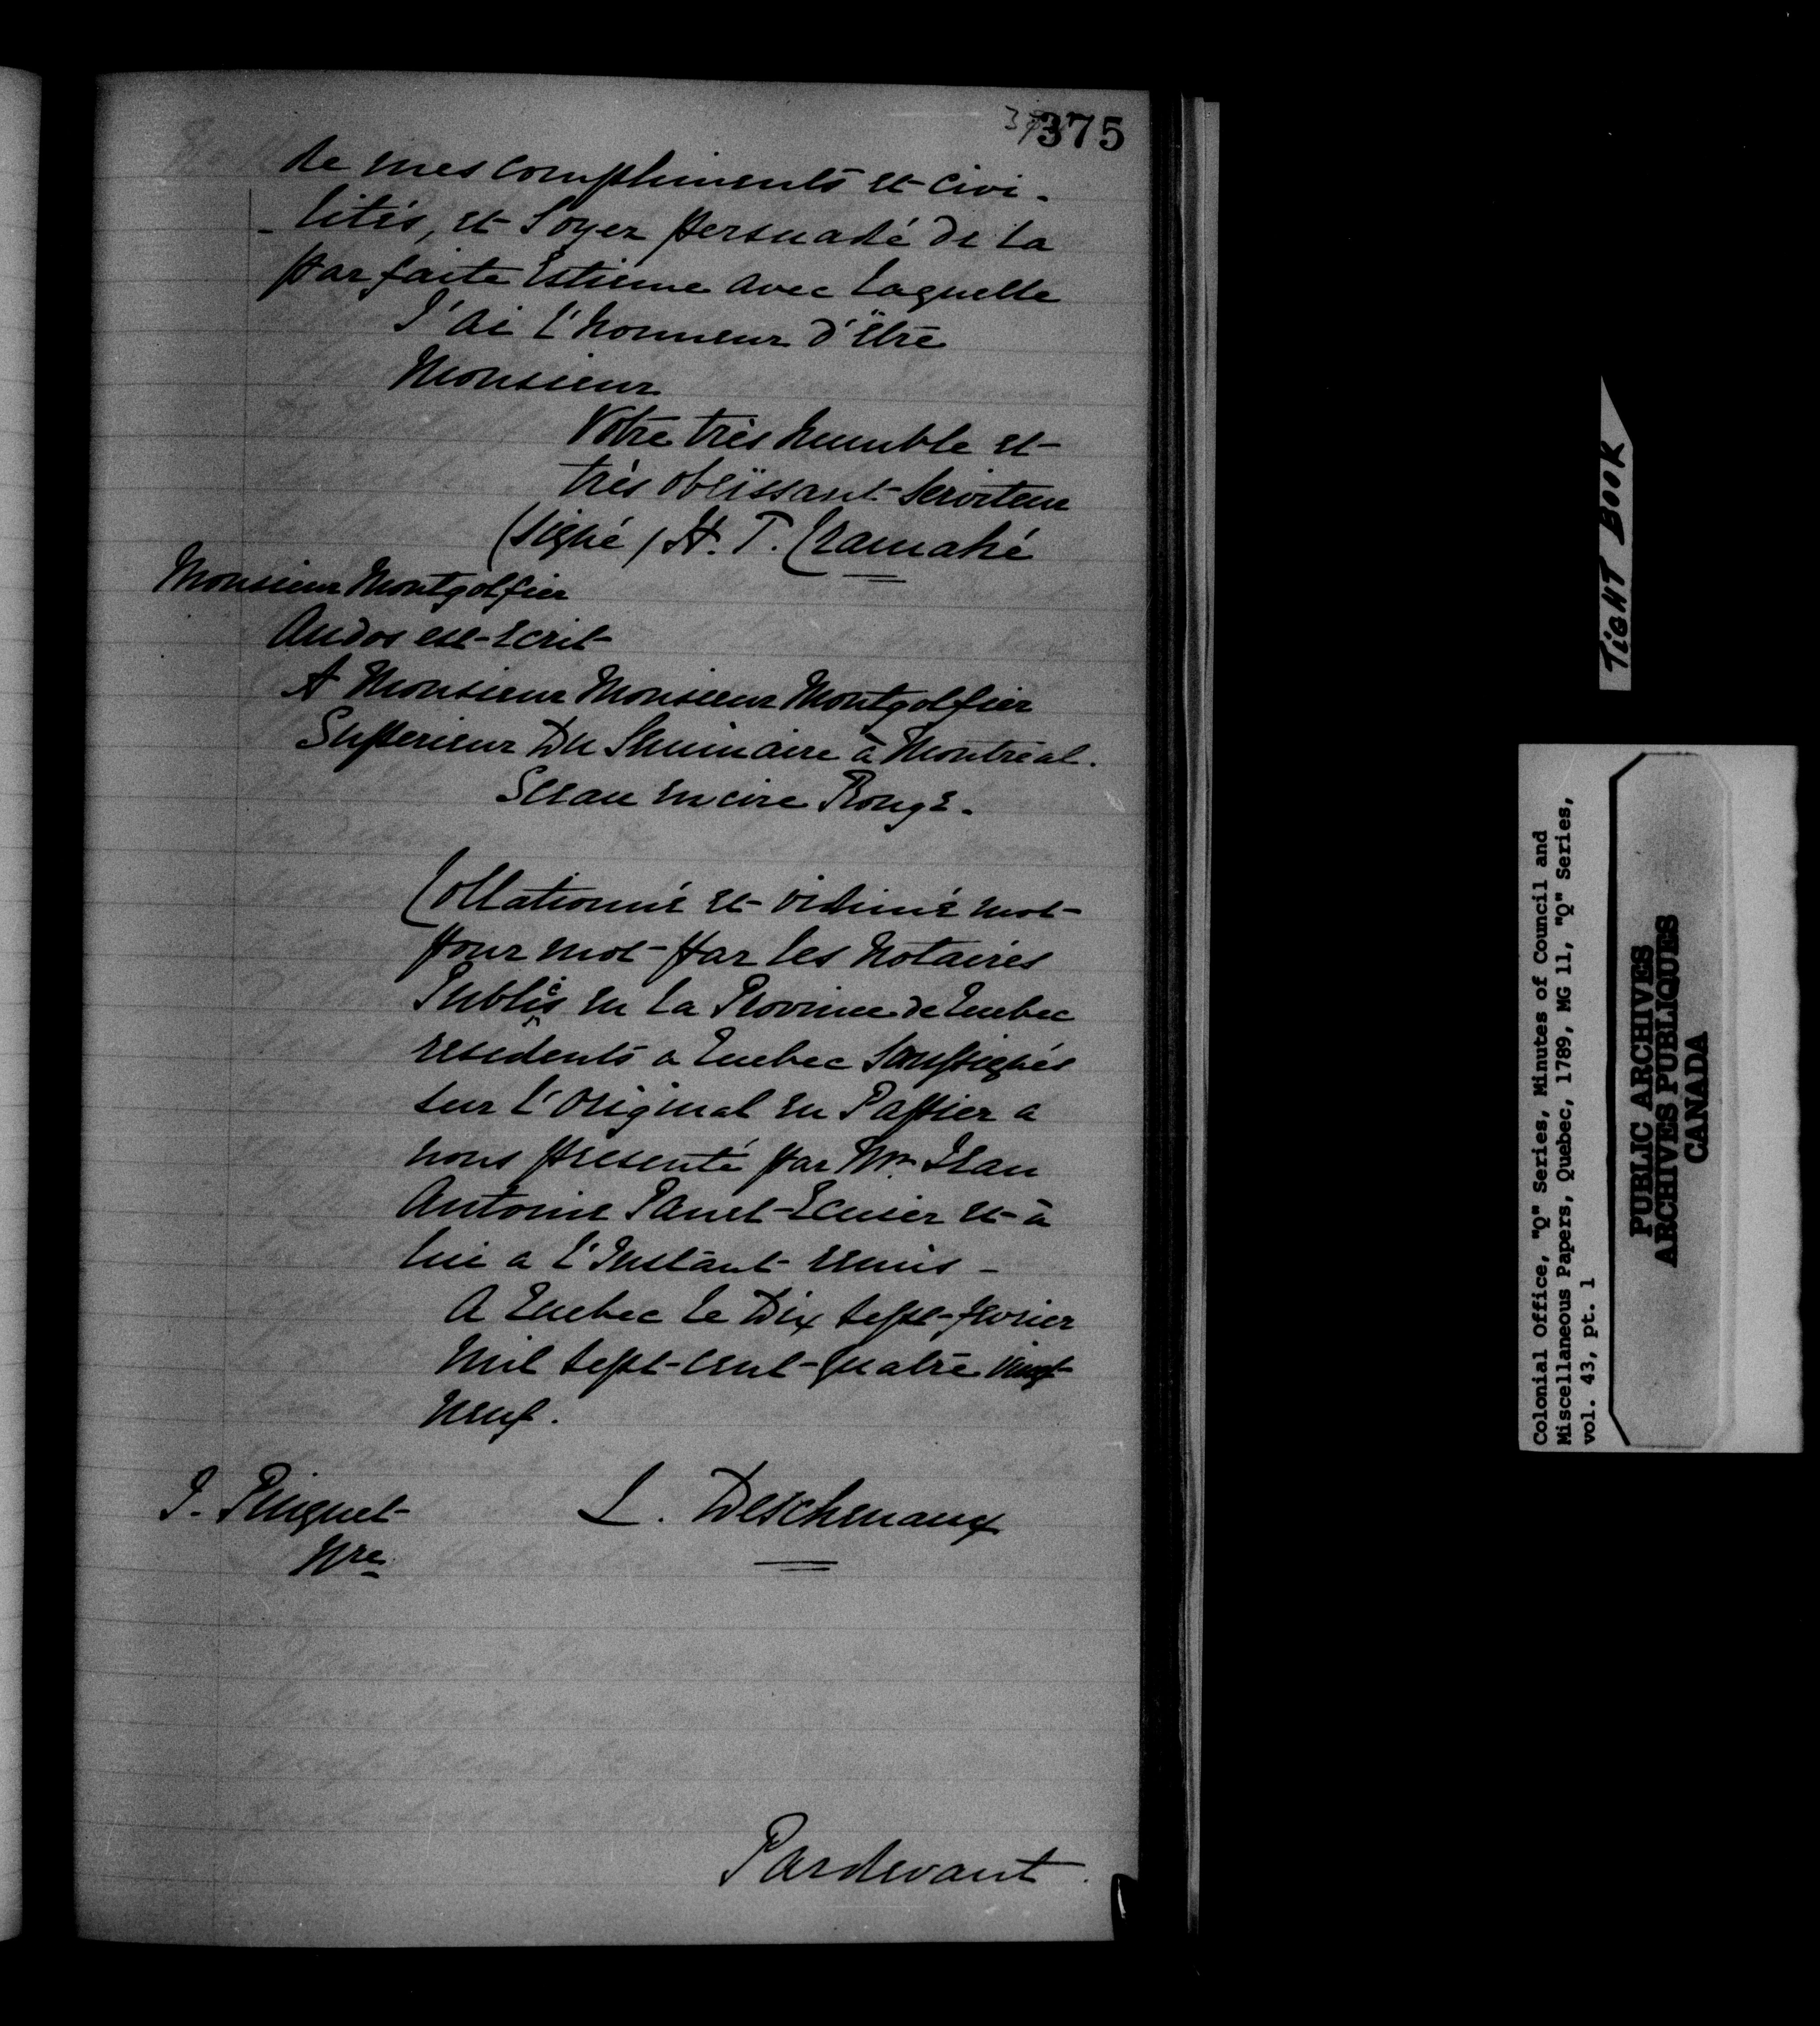 375
de mes compliments et civi-
-lités, et Soyez persuadé de la
parfaite Estime avec laquelle
J'ai l'honneur d'Être
Monsieur
Votre très humble et
très obéissant Serviteur
(Signé) H. T. Cramahé
Monsieur Montgolfier
Au dos est Ecrit
A Monsieur Monsieur Montgolfier
Superieur Du Seminaire à Montréal.
Sceau en cire Rouge.
Collationné et vidimé mot
pour mot par les Notaires
Publics en la Province de Quebec
residents a Quebec Soussignés
sur l'Original en Papier a
nous presenté par Mr. Jean
Antoine Panet Ecuier et à
lui a l'Instant remis -
A Quebec le Dix sept fevrier
Mil sept cent quatre vingt
Neuf.
J. Pinguet L. Deschenaux
Nre
Pardevant
TIGHT BOOK
Colonial Office, "Q" Series, Minutes of Council and
Miscellaneous Papers, Quebec, 1789, MG 11, "Q" Series,
vol. 43, pt. 1
PUBLIC ARCHIVES
ARCHIVES PUBLIQUES
CANADA